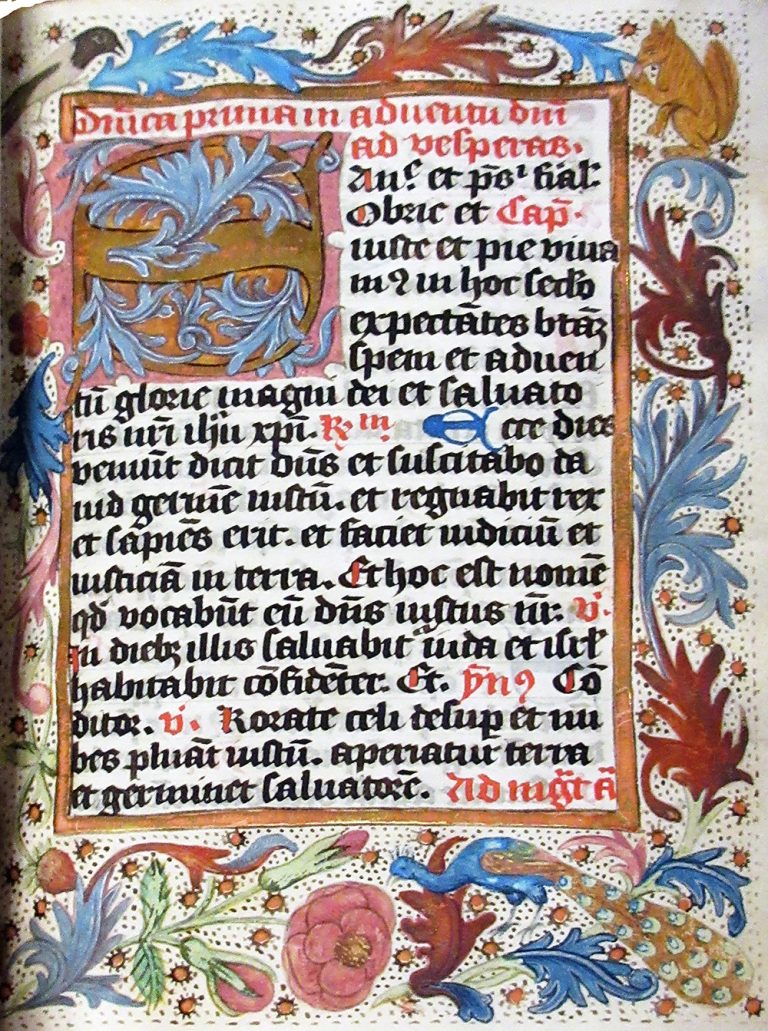 Dn̄ica prima in aduentu dn̄i
ad vesperas.
An͡c et p̄s͛ fial'.
Obric et Cap̄.
S iuste et pie viua
mꝰ in hoc sec̄lo
expectātes btāꝫ
spem et aduen
tū glorie magni dei et saluato
ris nr̄i ih̄u xp̄i. ℟m̄ Ecce dies
veniūt dicit dn̄s et suscitabo da
uid germē iustū. et regnabit rex
et sapiēs erit. et faciet iudiciū et
iusticiā in terra. Et hoc est nomē
qd̄ vocabūt eū dn̄s iustus nr̄. v̄.
In diebꝫ illis saluabit iuda et isr̄l
habitabit cōfidēter. Et. ym̄nꝰ Cō
ditor. v̄. Rorate celi desup̄ et nu
bes pluāt iustū. aperiatur terra
et germinet saluatorē. Ad mg̅t ā